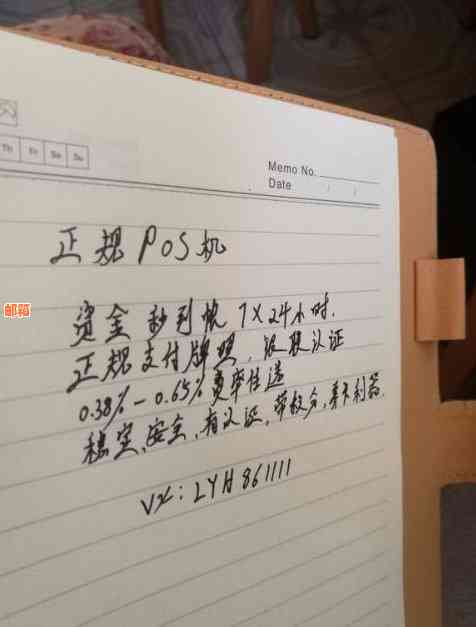 Th Fr Sa Su
Memo No.
Date / /
正规POS机
资金秒到帐 7×24小时.
邮箱
正规支付牌照,银联认证
0.38%-0.65%费率任选
稳定,安全,有认证,带积分,养卡利器.
VX:LYH861111